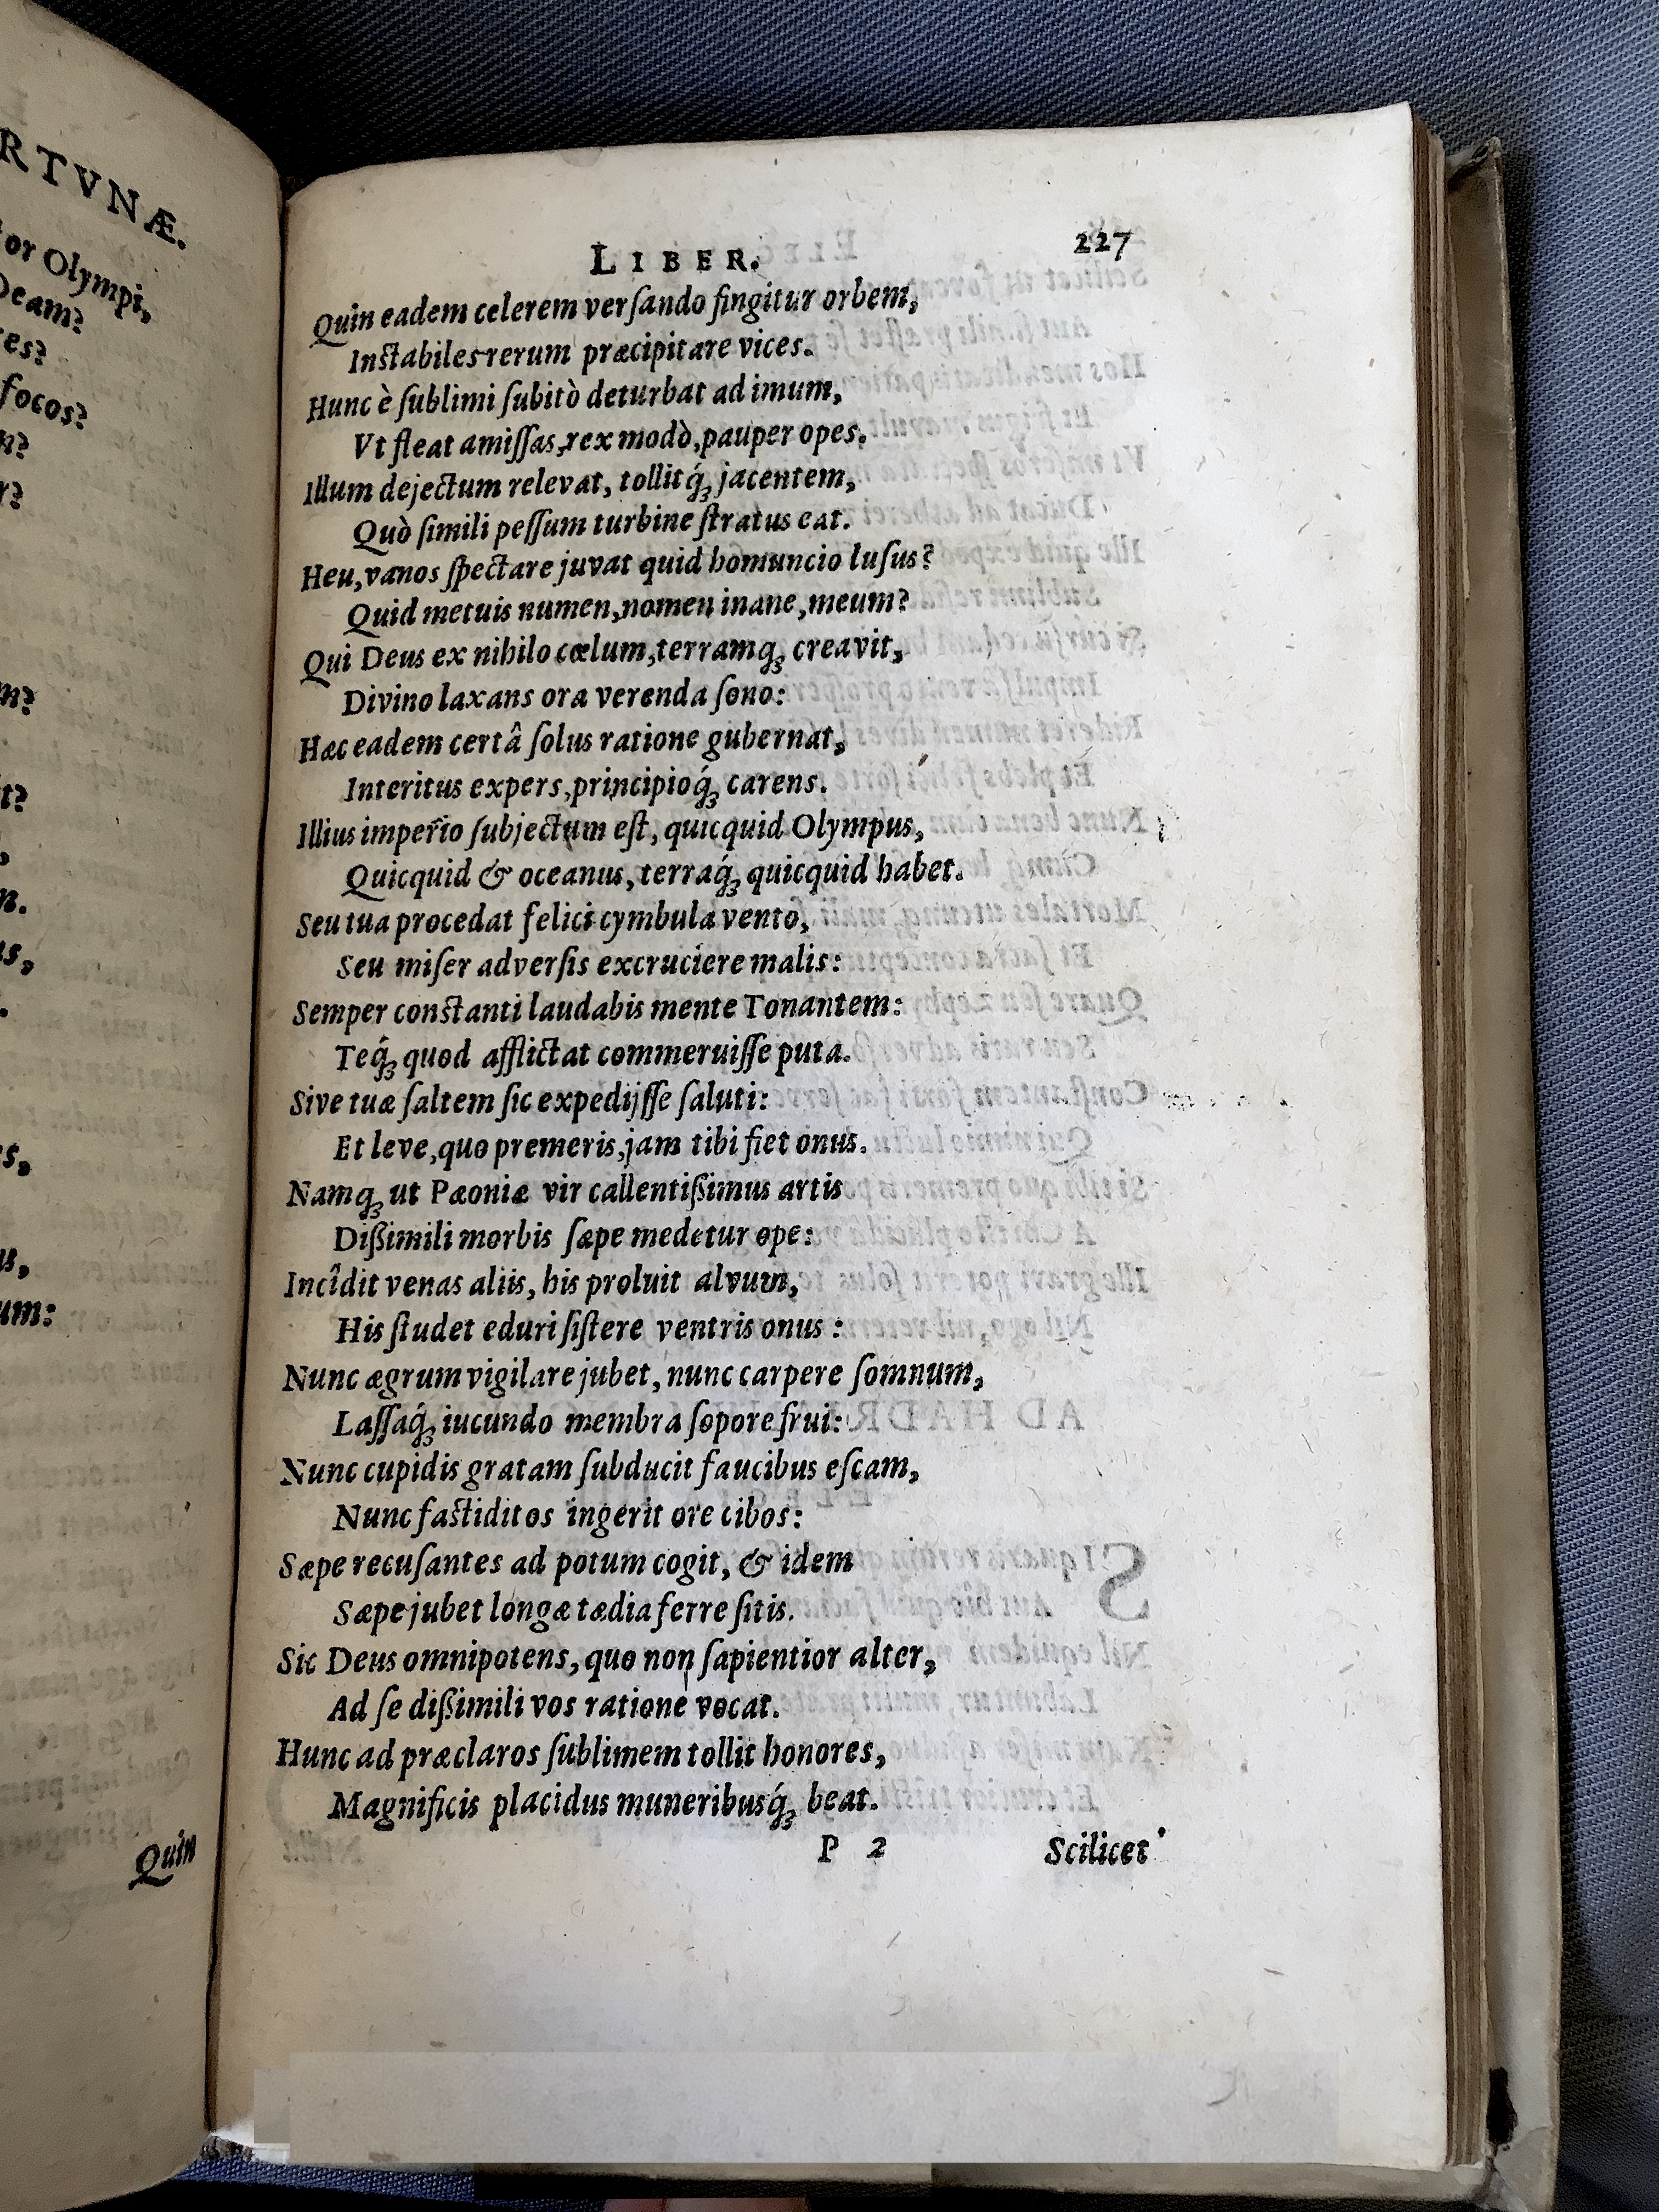 RTVNÆ.
or Olympi,
Deam?
es?
focos?
n?
r?
m?
t?
n.
s,
s,
us,
um:
Quin
LIBER. 227
Quin eadem celerem verſando fingitur orbem,
Inſtabiles rerum præcipitare vices.
Hunc è ſublimi ſubitò deturbat ad imum,
Vt fleat amiſſas, rex modò, pauper opes.
Illum dejectum relevat, tollitq́ꝫ jacentem,
Quò ſimili peſſum turbine ſtratus eat.
Heu, vanos ſpectare juvat quid homuncio luſus?
Quid metuis numen, nomen inane, meum?
Qui Deus ex nihilo cœlum, terramqꝫ creavit,
Divino laxans ora verenda ſono:
Hæc eadem certâ ſolus ratione gubernat,
Interitus expers, principioq́ꝫ carens.
Illius imperio ſubjectum eſt, quicquid Olympus,
Quicquid & oceanus, terraq́ꝫ quicquid habet.
Seu tua procedat felici cymbula vento,
Seu miſer adverſis excruciere malis:
Semper conſtanti laudabis mente Tonantem:
Teq́ꝫ quod afflictat commeruiſſe puta.
Sive tuæ ſaltem ſic expedijſſe ſaluti:
Et leve, quo premeris, jam tibi fiet onus.
Namqꝫ ut Pæoniæ vir callentißimus artis
Dißimili morbis ſæpe medetur ope:
Incîdit venas aliis, his proluit alvum,
His ſtudet eduri ſiſtere ventris onus:
Nunc ægrum vigilare jubet, nunc carpere ſomnum,
Laſſaq́ꝫ iucundo membra ſopore frui:
Nunc cupidis gratam ſubducit faucibus eſcam,
Nunc faſtiditos ingerit ore cibos:
Sæpe recuſantes ad potum cogit, & idem
Sæpe jubet longæ tædia ferre ſitis.
Sic Deus omnipotens, quo non ſapientior alter,
Ad ſe dißimili vos ratione vocat.
Hunc ad præclaros ſublimem tollit honores,
Magnificis placidus muneribusq́ꝫ beat.
P 2 Scilicet